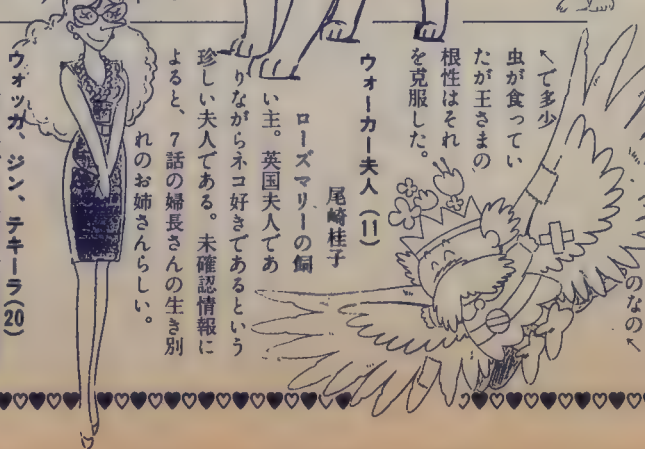 のなの↖
↖で多少
虫が食ってい
たが王さまの
根性はそれ
を克服した。
ウォーカー夫人(11)
尾崎桂子
ローズマリーの飼
い主。英国夫人であ
りながらネコ好きであるという
珍しい夫人である。未確認情報に
よると、7話の婦長さんの生き別
れのお姉さんらしい。
ウォッカ、ジン、テキーラ(20)